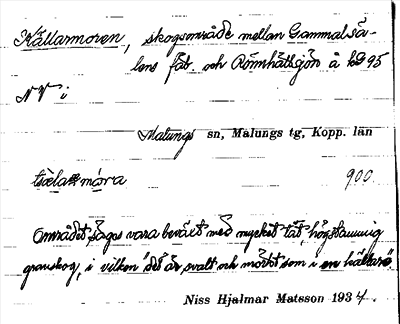 Källarmoren, skogsområde mellan Gammalsä-
lens fäb. och Römhåltjön å kD 95
NV i
Malungs sn, Malungs tg, Kopp. län
900
Området säges vara beväxt med mycket tät, högstammig
granskog, i vilken det är svalt och mörkt som i en källare.
Niss Hjalmar Matsson 1934.